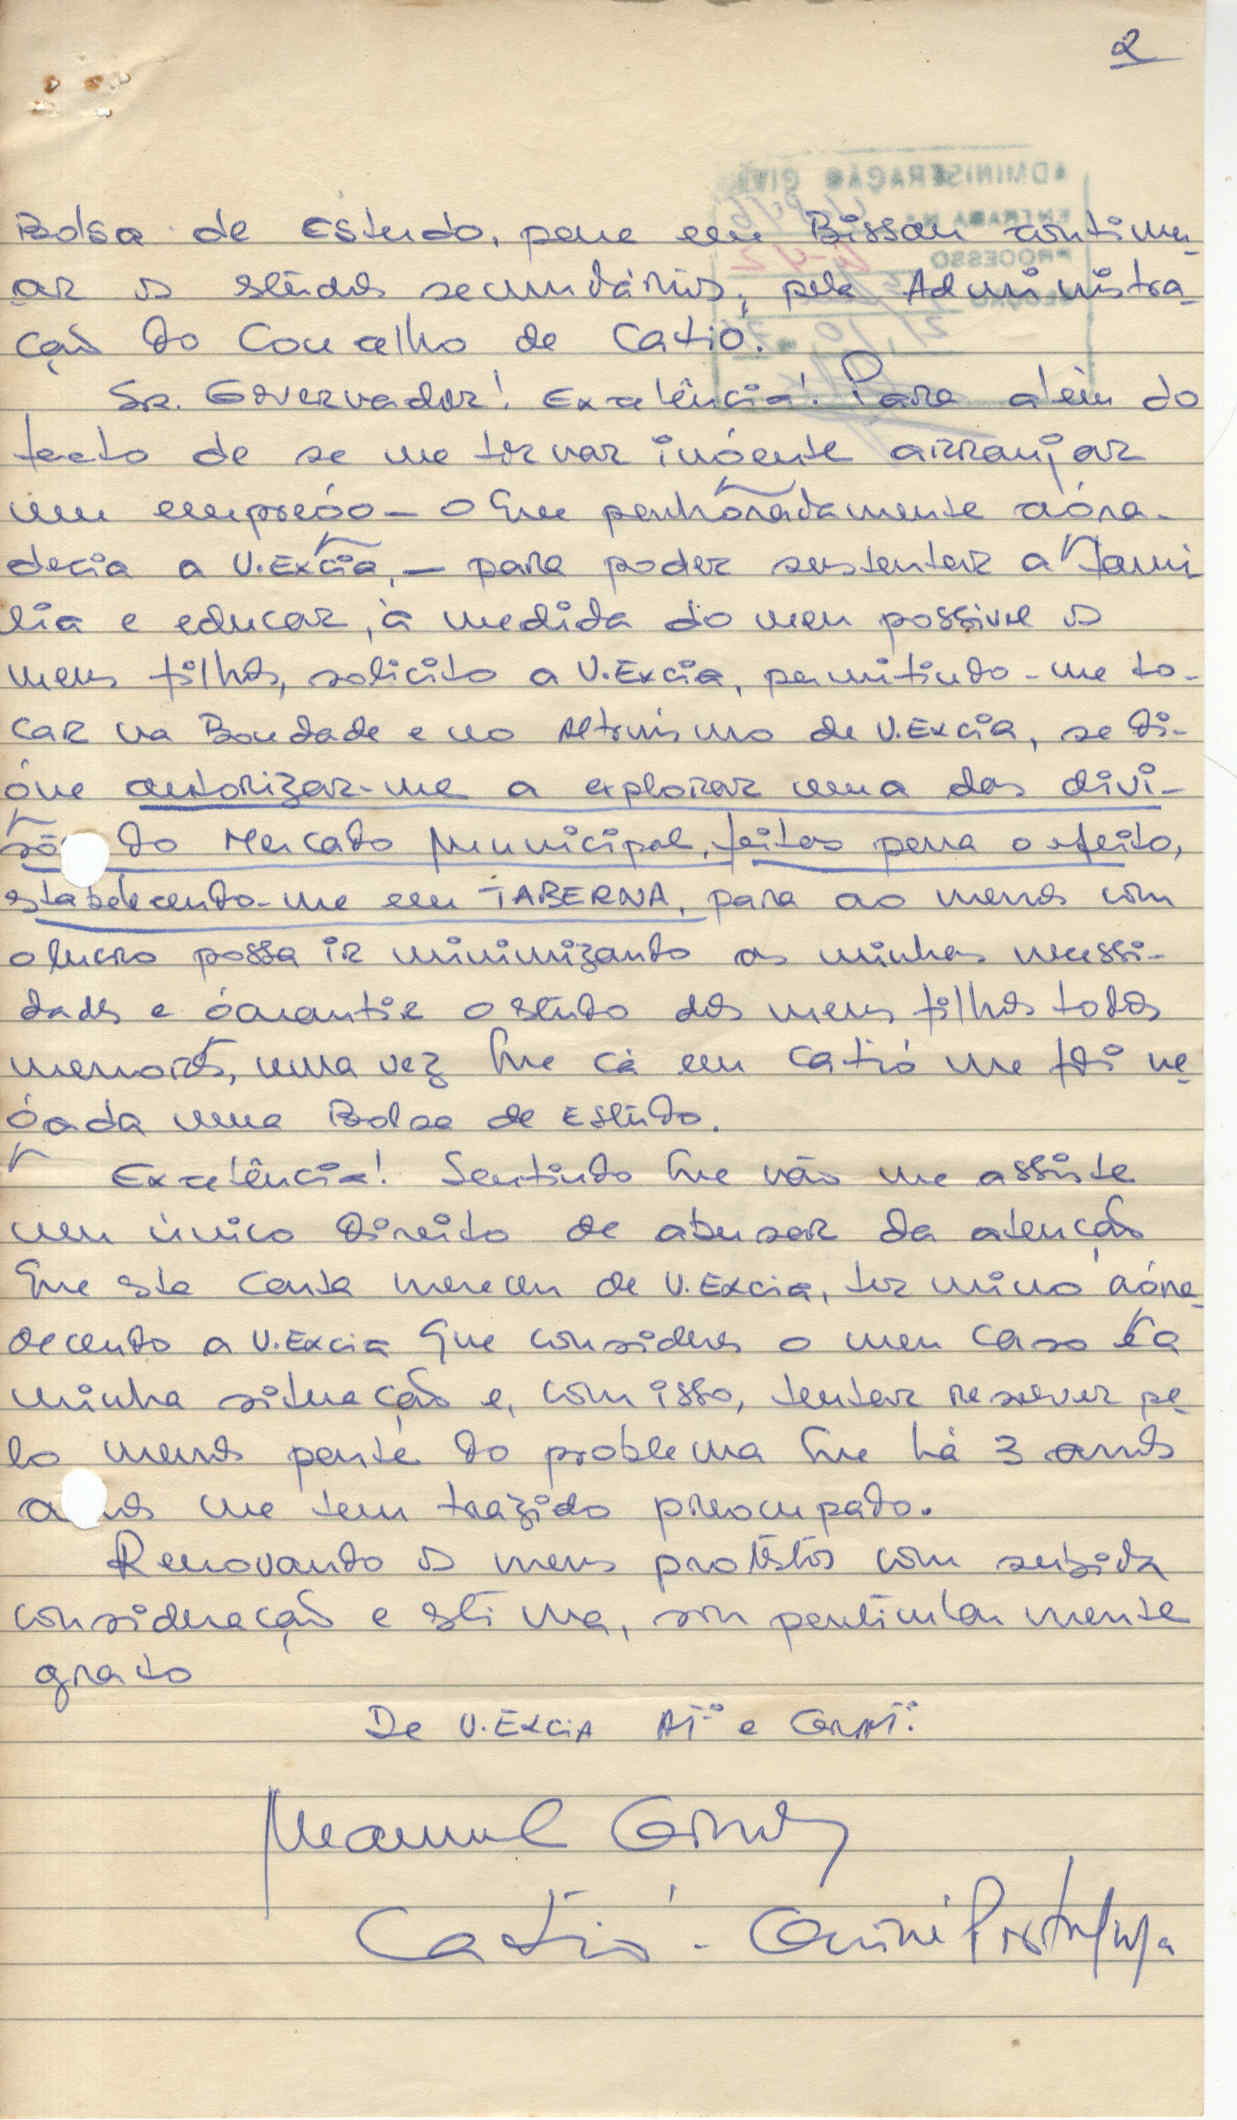 2
ADMINISTRAÇÃO CIVIL
ENTRADA N.º
PROCESSO
Bolsa de Estudo, para em Bissau continu-
ar os estudos secundários, pela Administra-
ção do Concelho de Catió.
Sr. Governador! Excelência! Para além do
facto de se me tornar urgente arranjar
um emprego – o que penhoradamente agra-
decia a V. Excia, – para poder sustentar a fami
lia e educar, à medida do meu possivel os
meus filhos, solicito a V. Excia, permitindo-me to-
car na Bondade e no Altruismo de V. Excia, se di-
gne autorizar-me a explorar uma das divi-
sões do Mercado Municipal, feitas para o efeito,
estabelecendo-me em TABERNA, para ao menos com
o lucro possa ir minimizando as minhas necessi-
dades e garantir o estudo dos meus filhos todos
menores, uma vez que cá em Catió me foi ne-
gada uma Bolsa de Estudo.
Excelência! Sentindo que não me assiste
um único direito de abusar da atenção
que esta carta mereceu de V. Excia, termino agra-
decendo a V. Excia que considere o meu caso e a
minha situação e, com isso, tentar resolver pe-
lo menos parte do problema que há 3 anos
anos me tem trazido preocupado.
Renovando os meus protestos com subida
consideração e estima, sou particularmente
grato
De V. Excia At.º e Grat.º
Manuel
Catió - Guiné Portuguesa